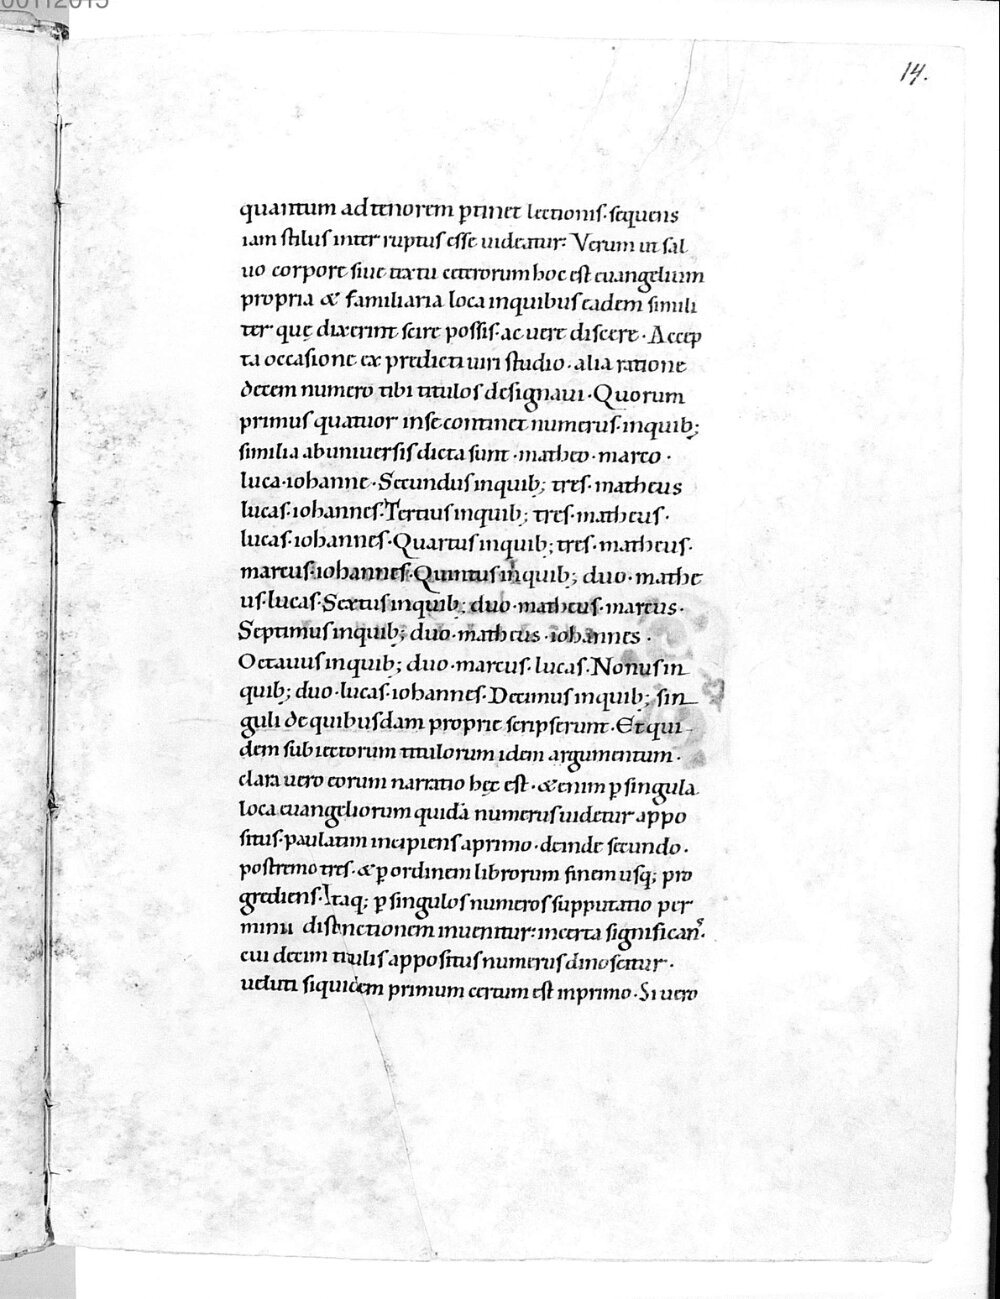 14.
quantum ad tenorem ptinet lectionis. sequens
iam stilus inter ruptus esse uideatur: Verum ut sal
uo corpore siue textu ceterorum hoc est euangelium
propria & familiaria loca inquibus eadem simili
ter quę dixerint scire possis. ac uere discere. Accep
ta occasione ex predicti uiri studio. alia ratione
decem numero tibi titulos designaui. Quorum
primus quatuor inse continet numerus. inquib;
similia abuniuersis dicta sunt. matheo. marco.
luca. iohanne. Secundus inquib; tres. matheus
lucas. iohannes. Tertius inquib; tres. matheus.
lucas. iohannes. Quartus inquib; tres. matheus.
marcus. iohannes. Quintus inquib; duo. mathe
us. lucas. Sextus inquib; duo. matheus. marcus.
Septimus inquib; duo. matheus. iohannes.
Octauus inquib; duo. marcus. lucas. Nonus in
quib; duo. lucas. iohannes. Decimus inquib; sin
guli de quibusdam proprie scripserunt. Et qui
dem subiectorum titulorum idem argumentum.
clara uero eorum narratio hęc est. & enim p singula
loca euangeliorum quidā numerus uidetur appo
situs. paulatim incipiens aprimo. deinde secundo.
postremo tres. & p ordinem librorum finem usq; pro
grediens. Itaq; p singulos numeros supputatio per
minii distinctionem inuenitur: incerta significans.
cui decim titulis appositus numerus dinoscatur.
ueluti siquidem primum certum est inprimo. Si uero